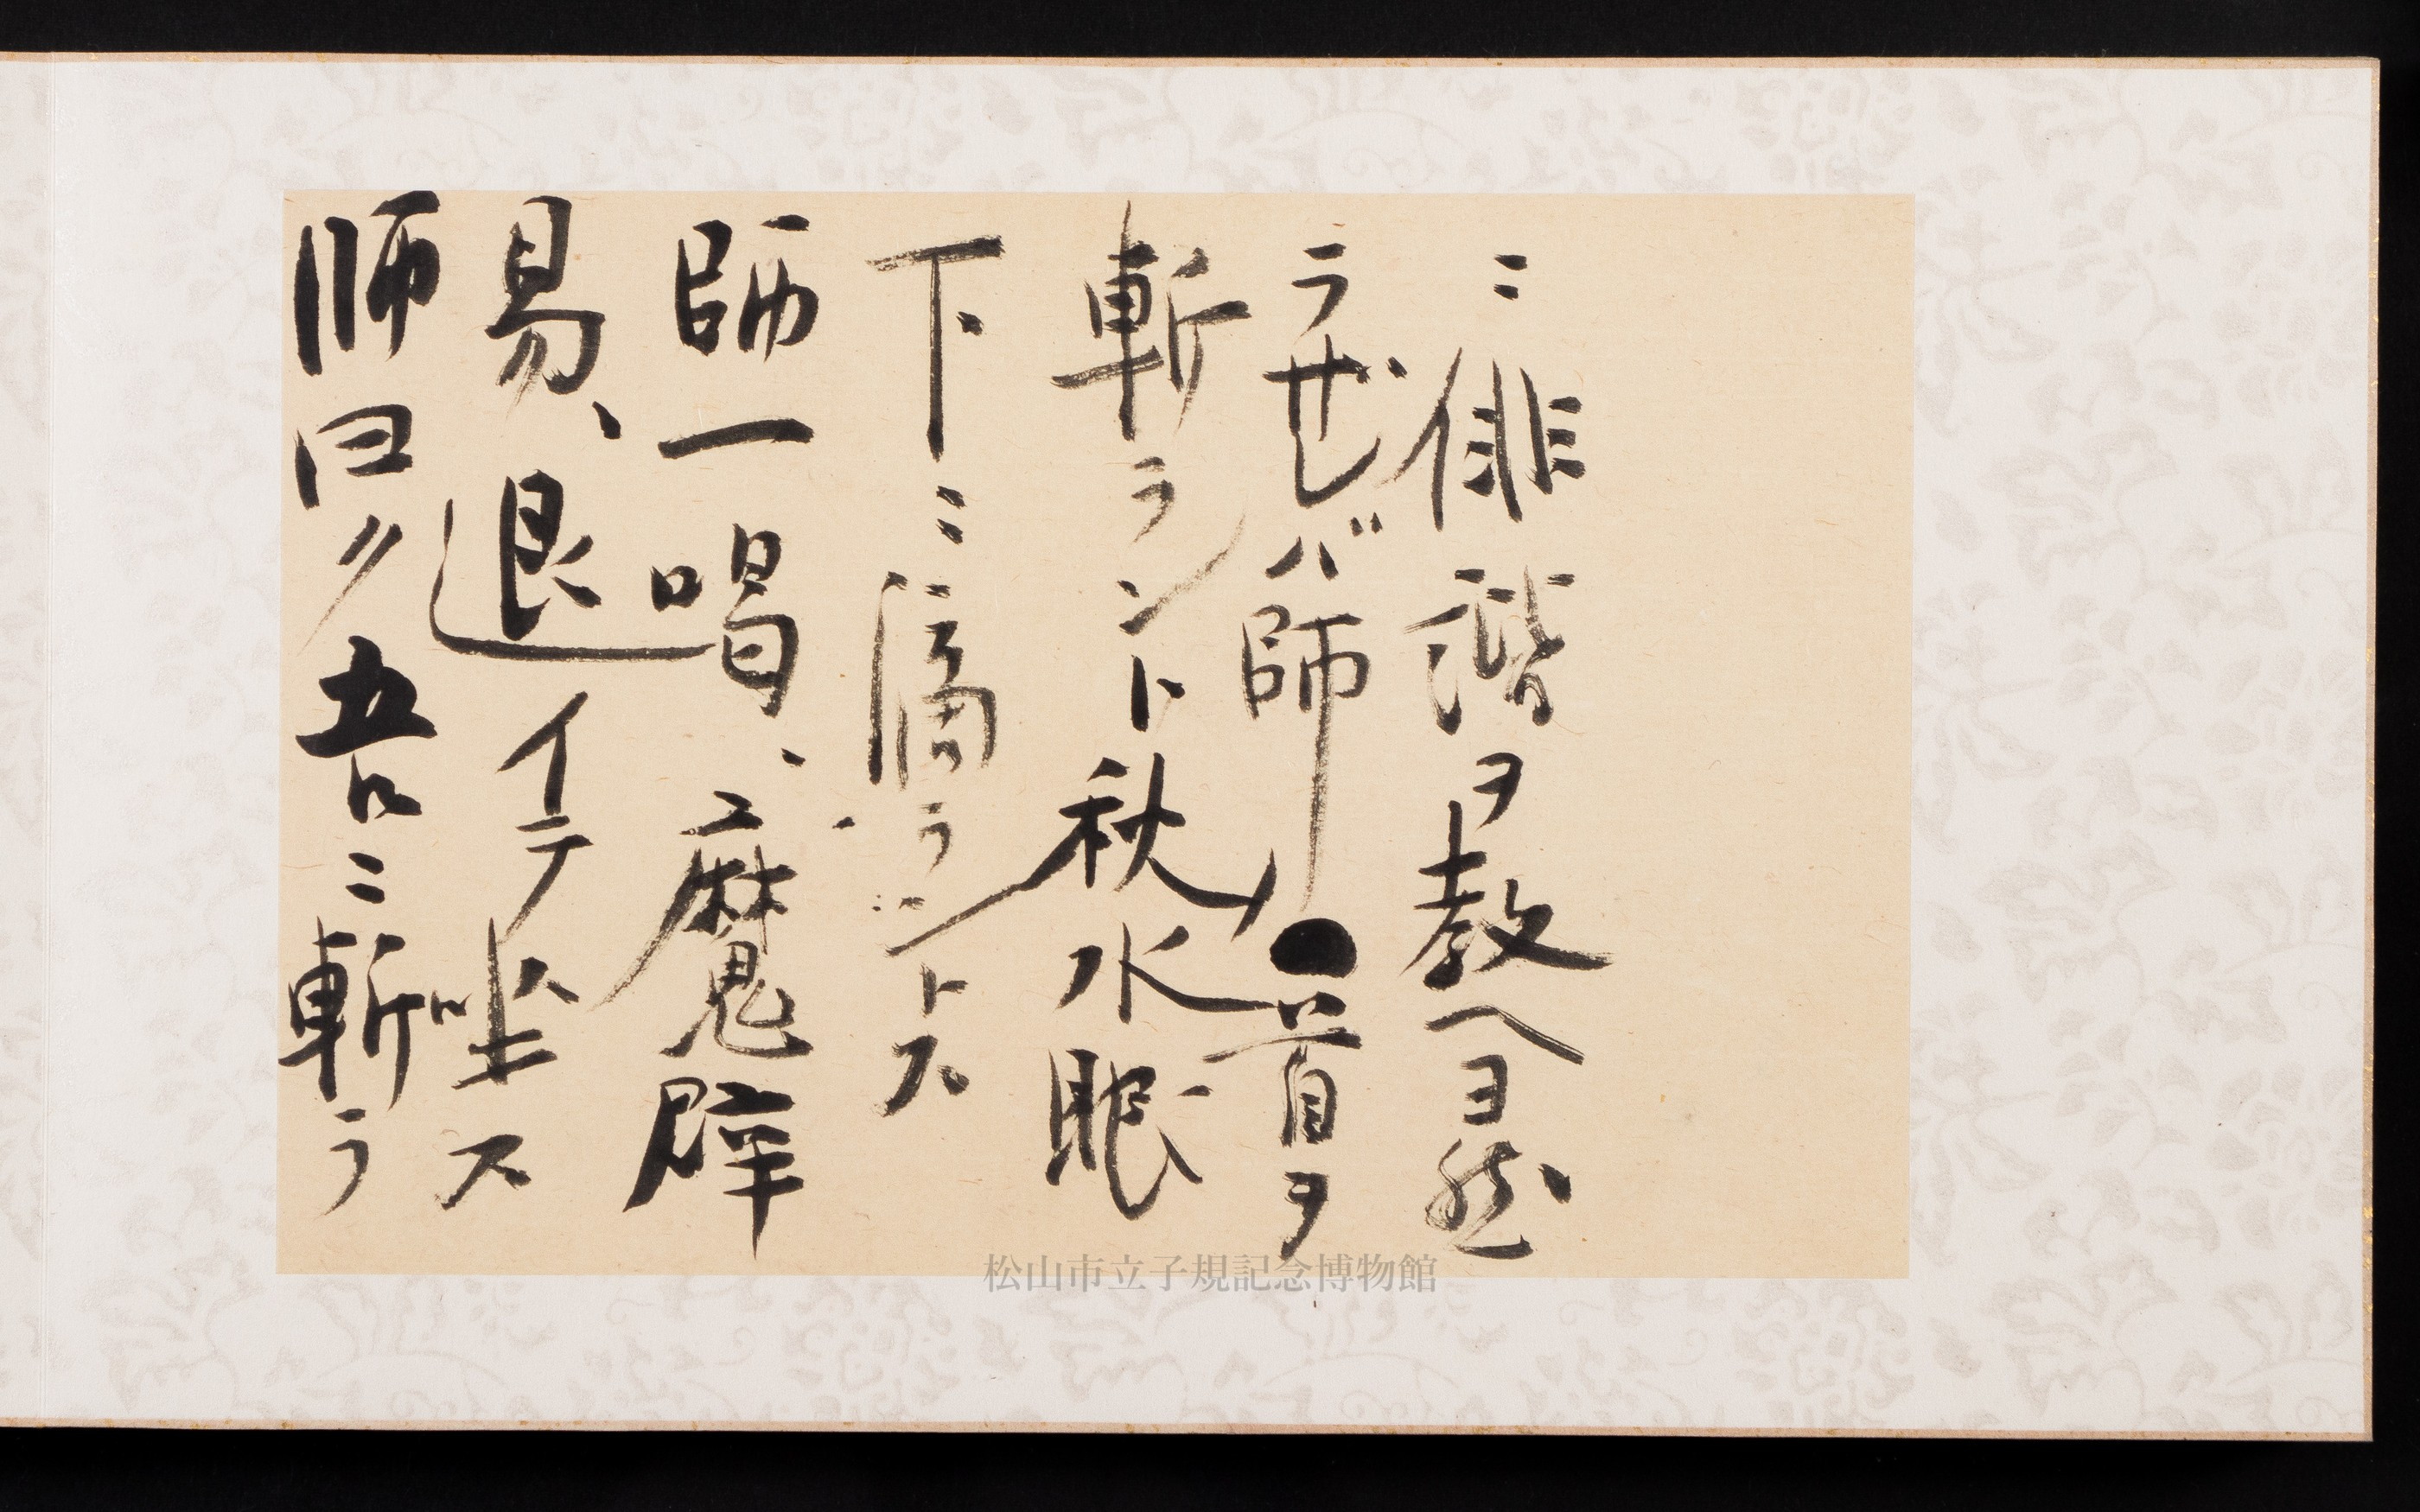 ニ俳諧ヲ教ヘヨ然
ラザレバ師ノ首ヲ
斬ラント秋水眼
下ニ滴ラントス
師一喝、魔辟
易、退イテ坐ス
師曰ク吾ニ斬ラ
松山市立子規記念博物館